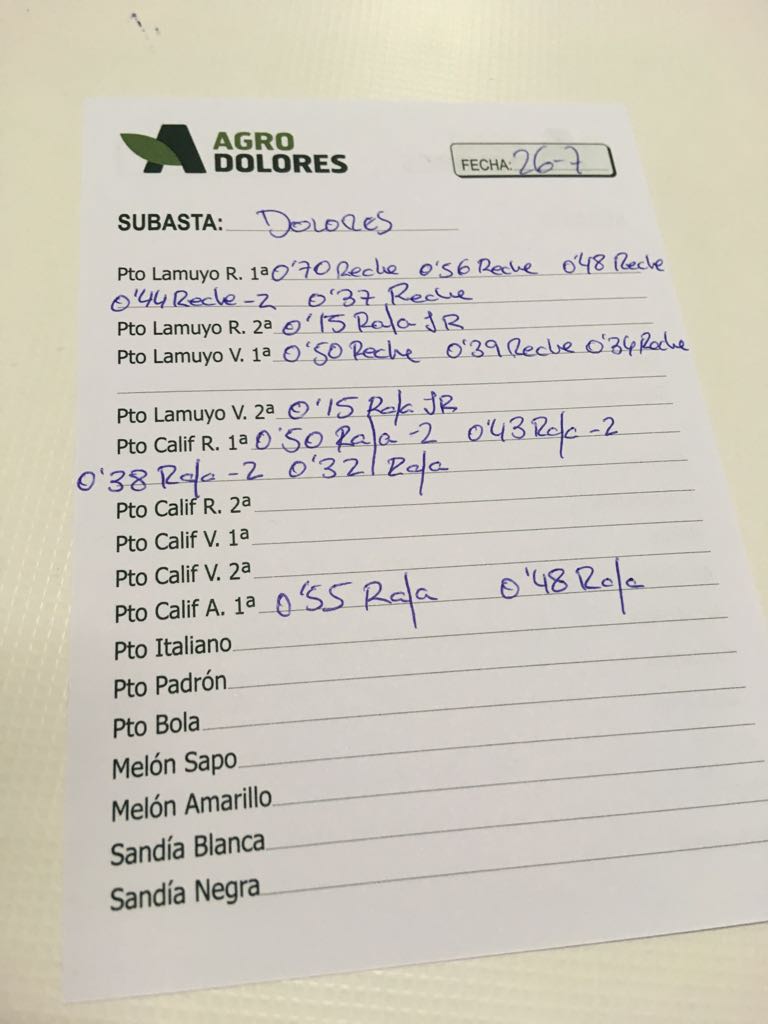 AGRO
DOLORES
FECHA: 26-7
SUBASTA: DOLORES
Pto Lamuyo R. 1ª 0'70 Reche 0'56 Reche 0'48 Reche
0'44 Reche -2 0'37 Reche
Pto Lamuyo R. 2ª 0'15 Rafa JR
Pto Lamuyo V. 1ª 0'50 Reche 0'39 Reche 0'34 Reche
Pto Lamuyo V. 2ª 0'15 Rafa JR
Pto Calif R. 1ª 0'50 Rafa -2 0'43 Rafa -2
0'38 Rafa -2 0'32 Rafa
Pto Calif R. 2ª
Pto Calif V. 1ª
Pto Calif V. 2ª
Pto Calif A. 1ª 0'55 Rafa 0'48 Rafa
Pto Italiano
Pto Padrón
Pto Bola
Melón Sapo
Melón Amarillo
Sandía Blanca
Sandía Negra